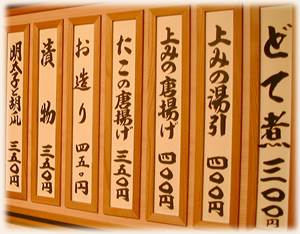 どて煮 三〇〇円
上みの湯引 四〇〇円
上みの唐揚げ 四〇〇円
たこの唐揚げ 三五〇円
お造り 四五〇円
漬物 三五〇円
明太子と胡瓜 三五〇円